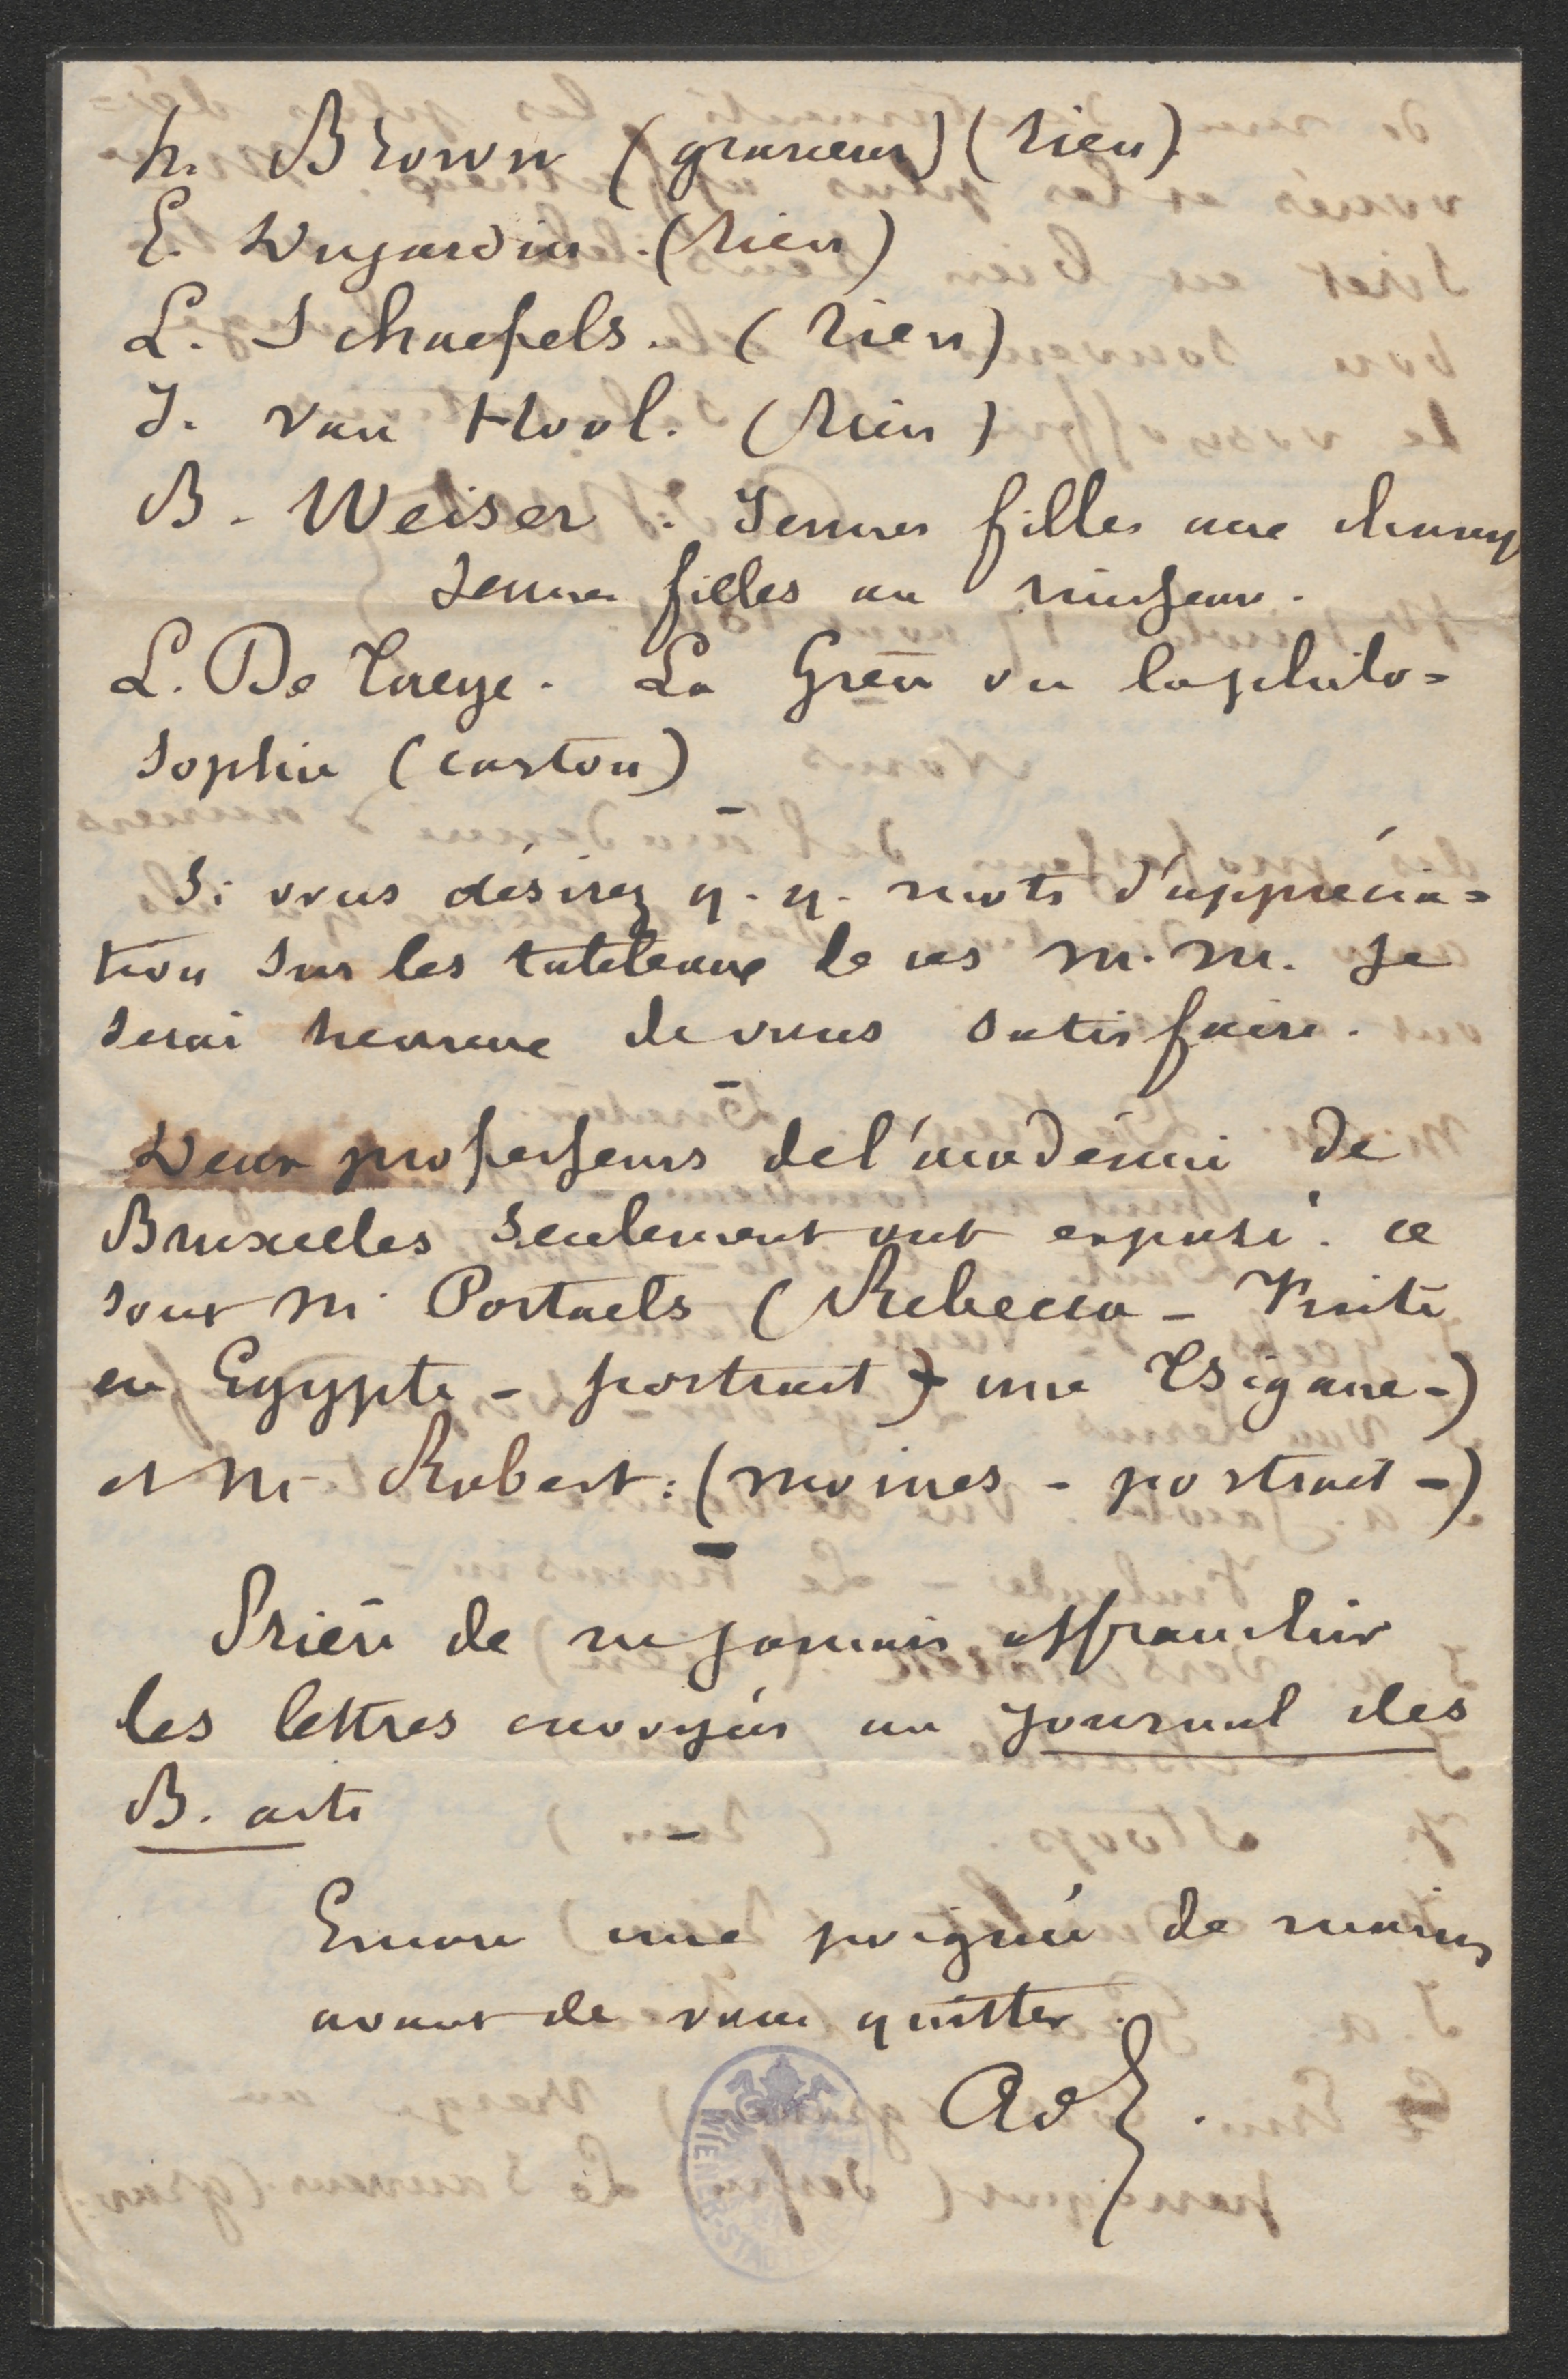 h. Brown (graveur) (rien)
E. Dujardin. (rien)
L. Schaefels. (rien)
J. Van Hool. (rien)
B. Weiser. Jeunes filles aux champs
Jeunes filles au ruisseau.
L. De Taeye. La Grèce ou la philo=
sophie (carton)
Si vous désirez q. q. mots d'apprécia=
tion sur les tableaux de ces M. M. je
serai heureux de vous satisfaire.
Deux professeurs de l'académie de
Bruxelles seulement ont exposé: ce
sont M. Portaels (Rebecca - Fuite
en Egypte - portrait - une Tsigane -)
et M. Robert: (moines - portrait -)
Prière de ne jamais affranchir
les lettres envoyées au journal des
B. arts
Encore une poignée de mains
avant de vous quitter.
Ad S.
WIENER-STADT